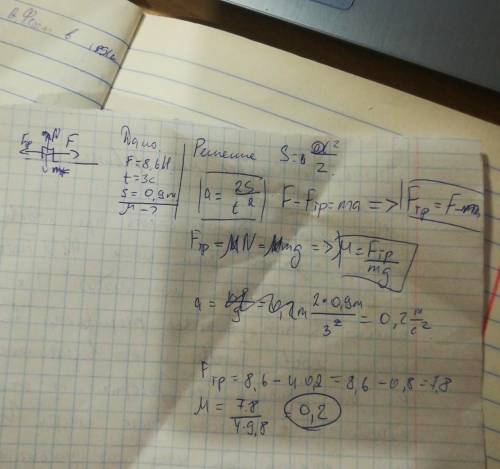 Fтр N F
mg
Дано
F=8,6Н
t=3с
S=0,9м
μ-?
Решение S= at²/2
a = 2S/t² F-Fтр=ma => Fтр=F-ma
Fтр = μN = μmg => μ = Fтр/mg
a = 2·0,9м/3² = 0,2 м/с²
Fтр = 8,6 - 4·0,2 = 8,6 - 0,8 = 7,8
μ = 7.8/4·9,8 = 0,2